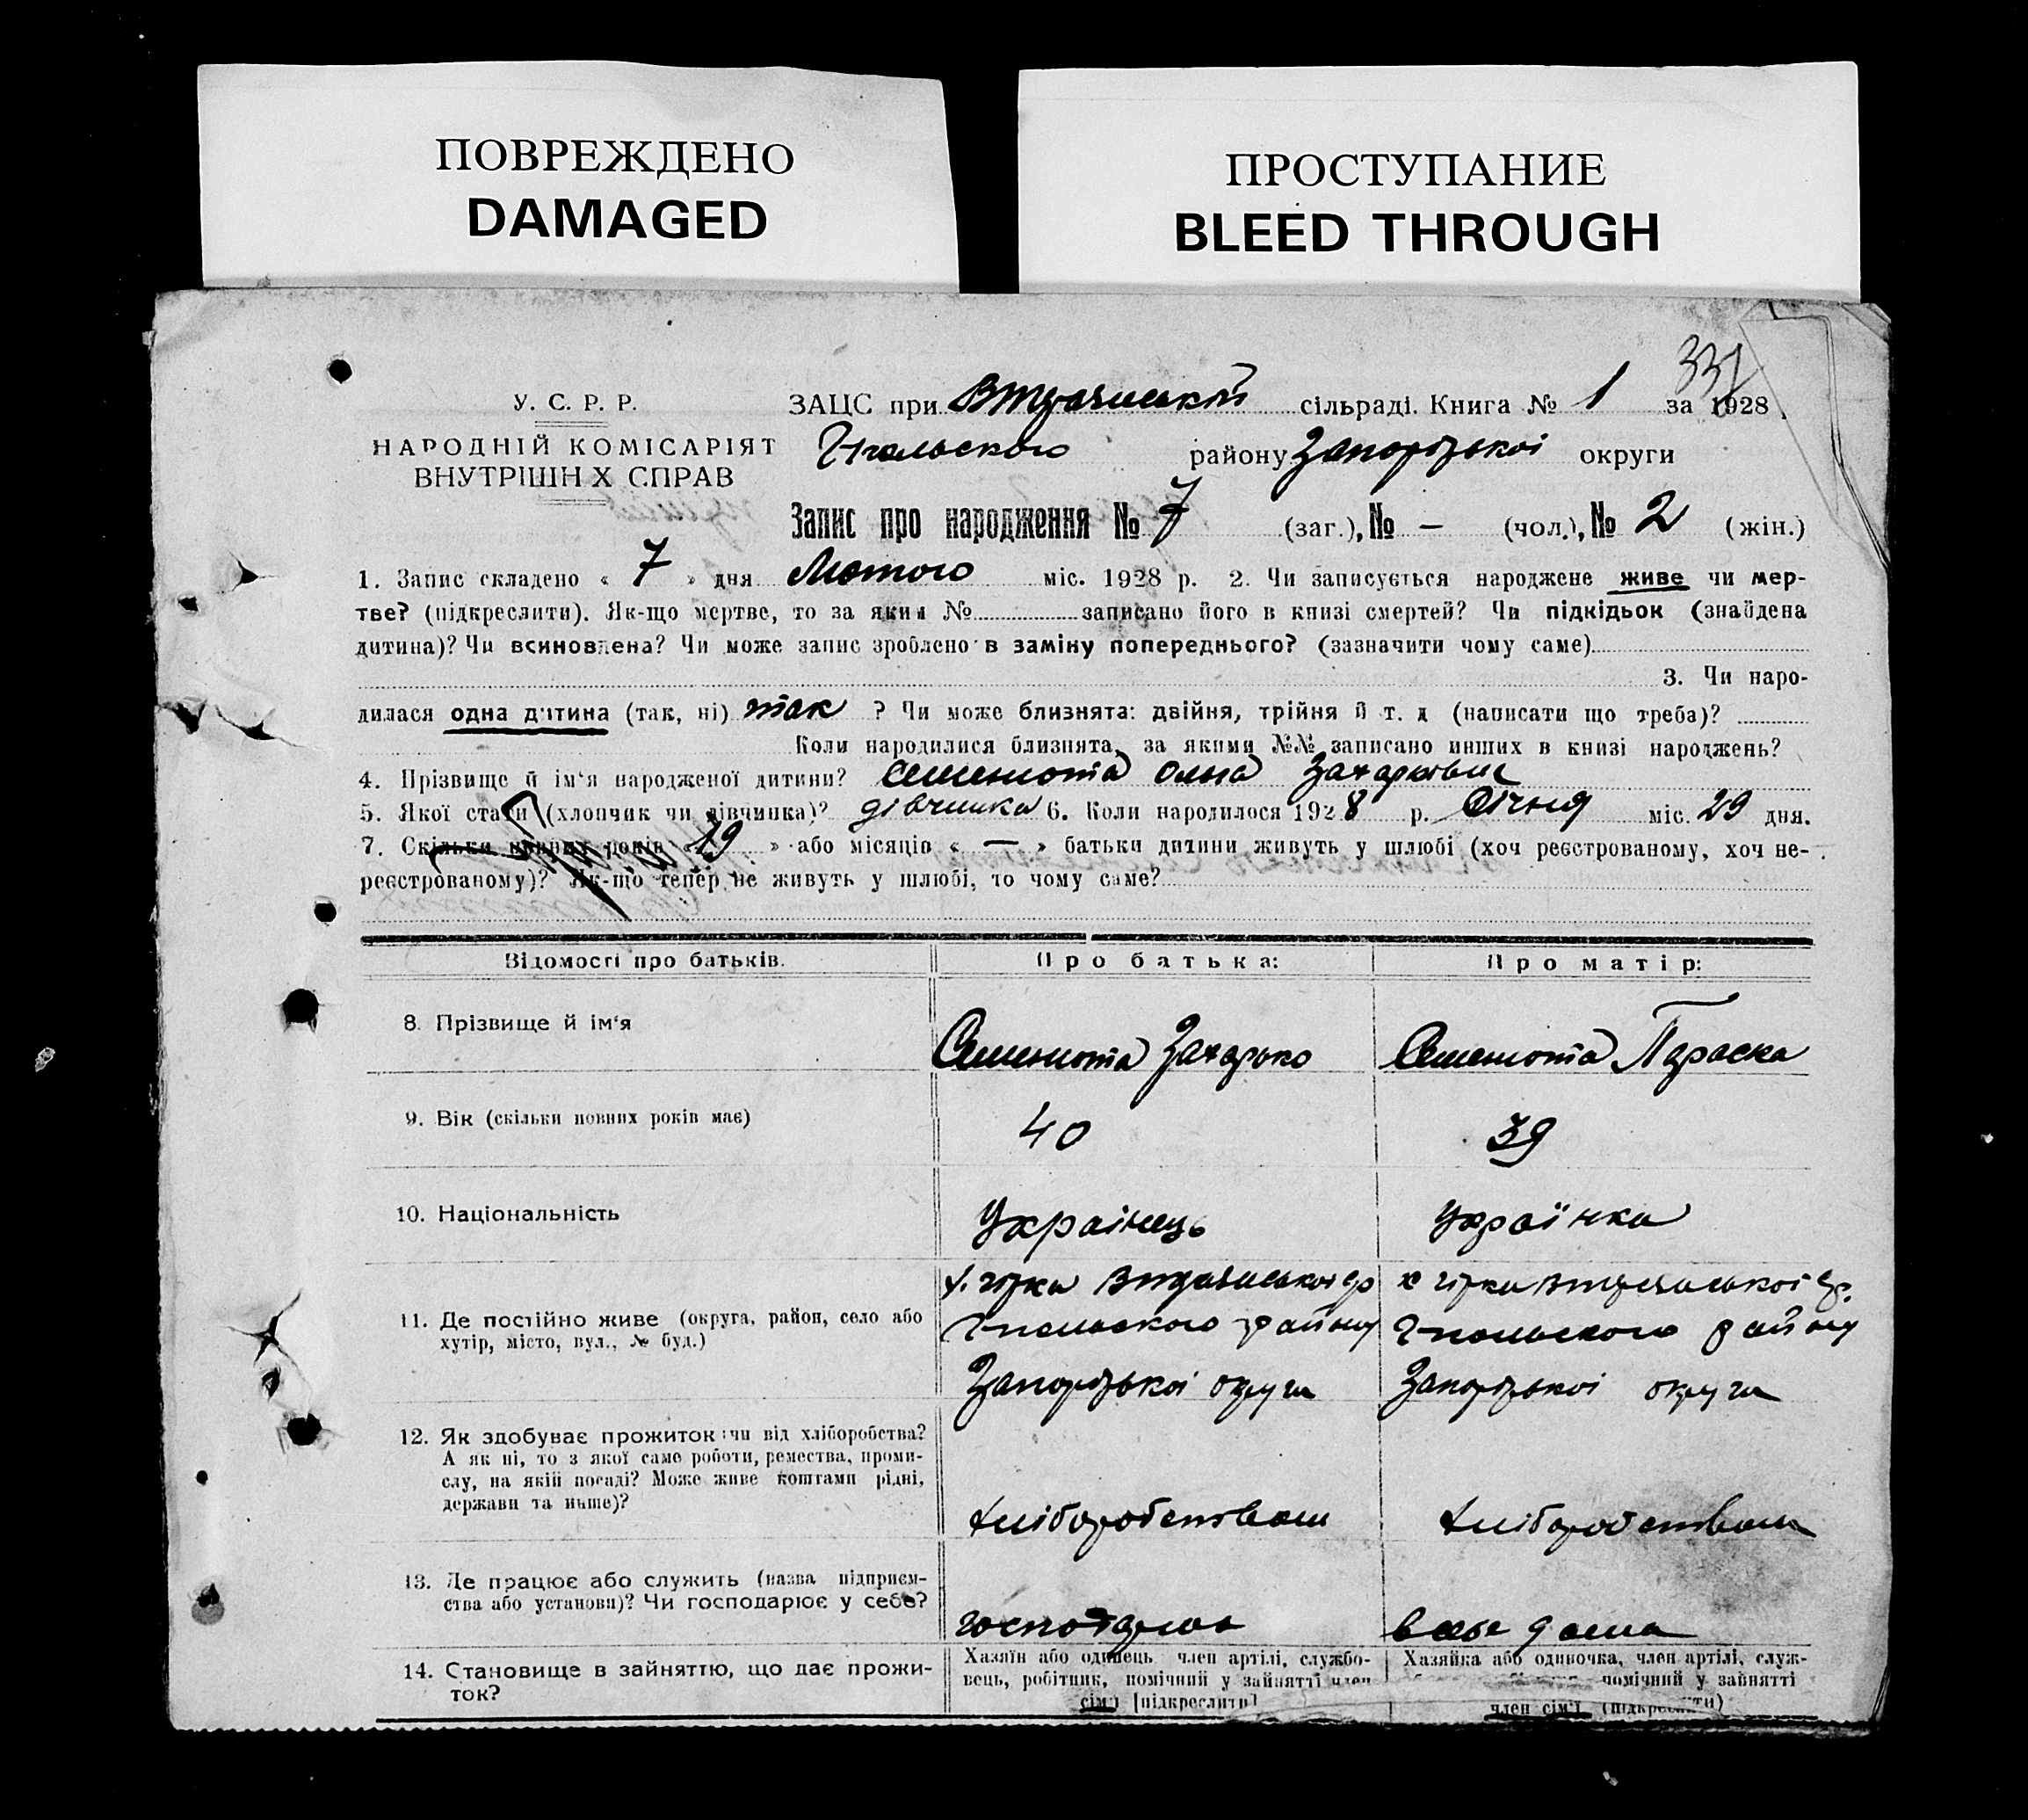 ПОВРЕЖДЕНО
DAMAGED
ПРОСТУПАНИЕ
BLEED THROUGH
331
У. С. Р. Р.
НАРОДНІЙ КОМІСАРІЯТ
ВНУТРІШН Х СПРАВ
ЗАЦС при сільраді. Книга № 1 за 1928
району Запорізької округи
Запис про народження № 7 (заг.), № — (чол.), № 2 (жін.)
1. Запис складено « 7 » дня Лютого міс. 1928 р. 2. Чи записується народжене живе чи мер-
тве? (підкреслити). Як-що мертве, то за яким № записано його в книзі смертей? Чи підкідьок (знайдена
дитина)? Чи всиновлена? Чи може запис зроблено в заміну попереднього? (зазначити чому саме)
3. Чи наро-
дилася одна дитина (так, ні) так ? Чи може близнята: двійня, трійня й т. д (написати що треба)?
Коли народилися близнята, за якими №№ записано инших в книзі народжень?
4. Прізвище й ім'я народженої дитини? Семенюта Ольга
5. Якої стати (хлопчик чи дівчинка)? дівчинка 6. Коли народилося 1928 р. Січня міс. 29 дня.
7. Скільки повних років « 19 » або місяців « — » батьки дитини живуть у шлюбі (хоч реєстрованому, хоч не-
реєстрованому)? Як-що тепер не живуть у шлюбі, то чому саме?
Відомості про батьків.
Про батька:
Про матір:
8. Прізвище й ім'я
Семенюта Захарько
Семенюта Параска
9. Вік (скільки повних років має)
40
39
10. Національність
Українець
Українка
11. Де постійно живе (округа, район, село або
хутір, місто, вул., № буд.)
району
Запорізької округи
району
Запорізької округи
12. Як здобуває прожиток: чи від хліборобства?
А як ні, то з якої саме роботи, ремества, проми-
слу, на якій посаді? Може живе коштами рідні,
держави та инше)?
хліборобством
хліборобством
13. Де працює або служить (назва підприєм-
ства або установи)? Чи господарює у себе?
в себе дома
14. Становище в зайняттю, що дає прожи-
ток?
Хазяїн або одинець член артілі, службо-
вець, робітник, помічний у зайнятті член
сім'ї [підкреслити]
Хазяйка або одиночка, член артілі, служ-
помічний у зайнятті
член сім'ї (підкреслити)